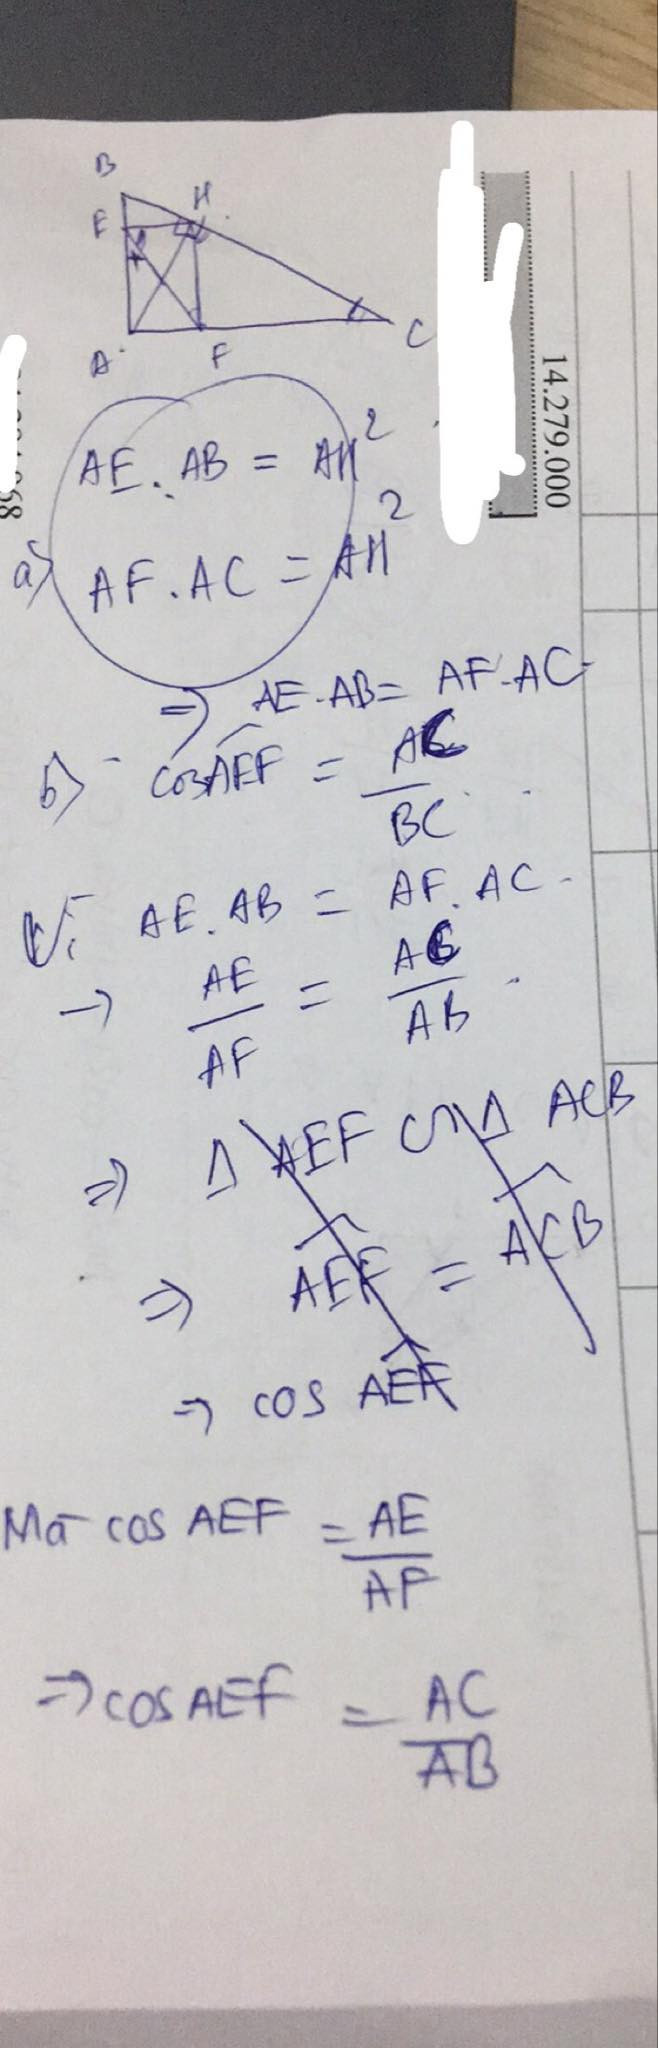 B
E H
A F C
14.279.000
AE. AB = AH²
a) AF. AC = AH²
=> AE. AB = AF. AC
b) cos AEF = AC / BC
Vì AE. AB = AF. AC
-> AE / AF = AC / AB
=> Δ AEF ∽ Δ ACB
=> AEF = ACB
=> cos AEF
Mà cos AEF = AE / AF
=> cos AEF = AC / AB